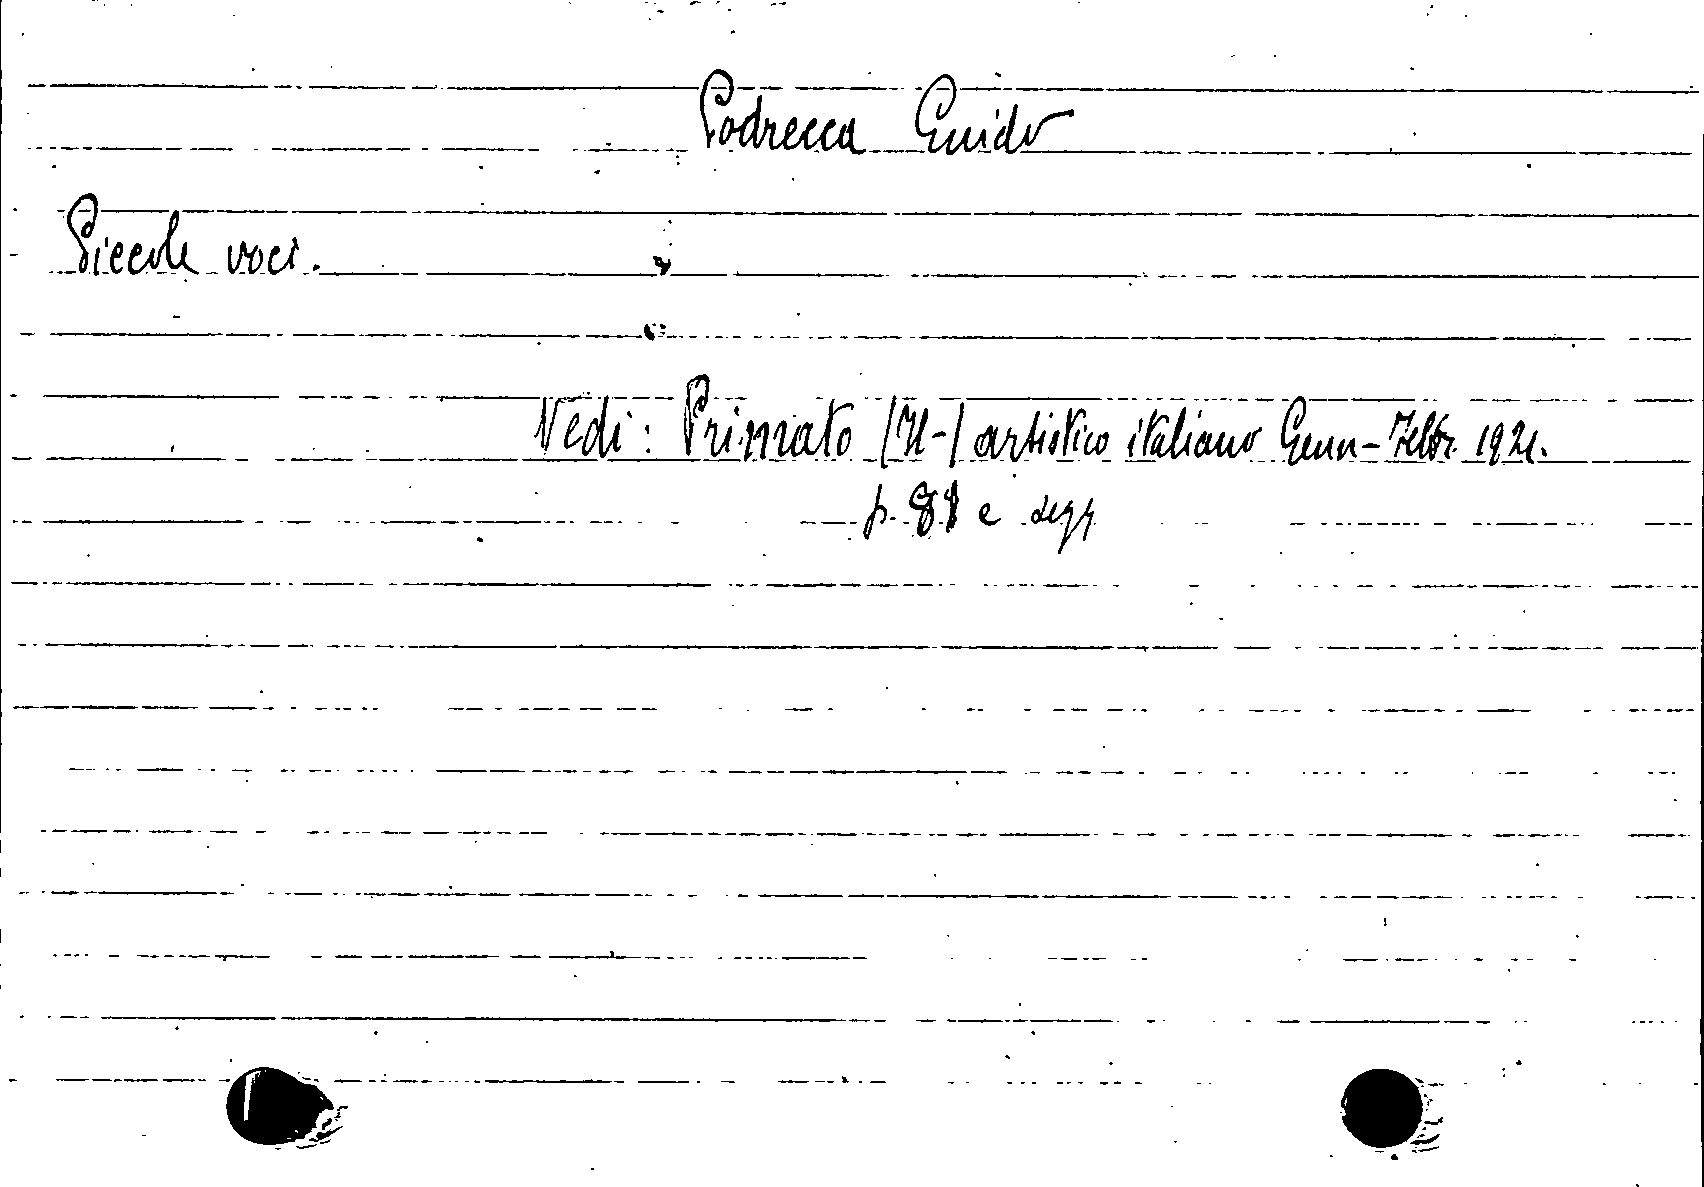 Podrecca Guido
Piccole voci.
Vedi: Primato (Il-) artistico italiano Genn-Febbr. 1921.
p. 81 e segg